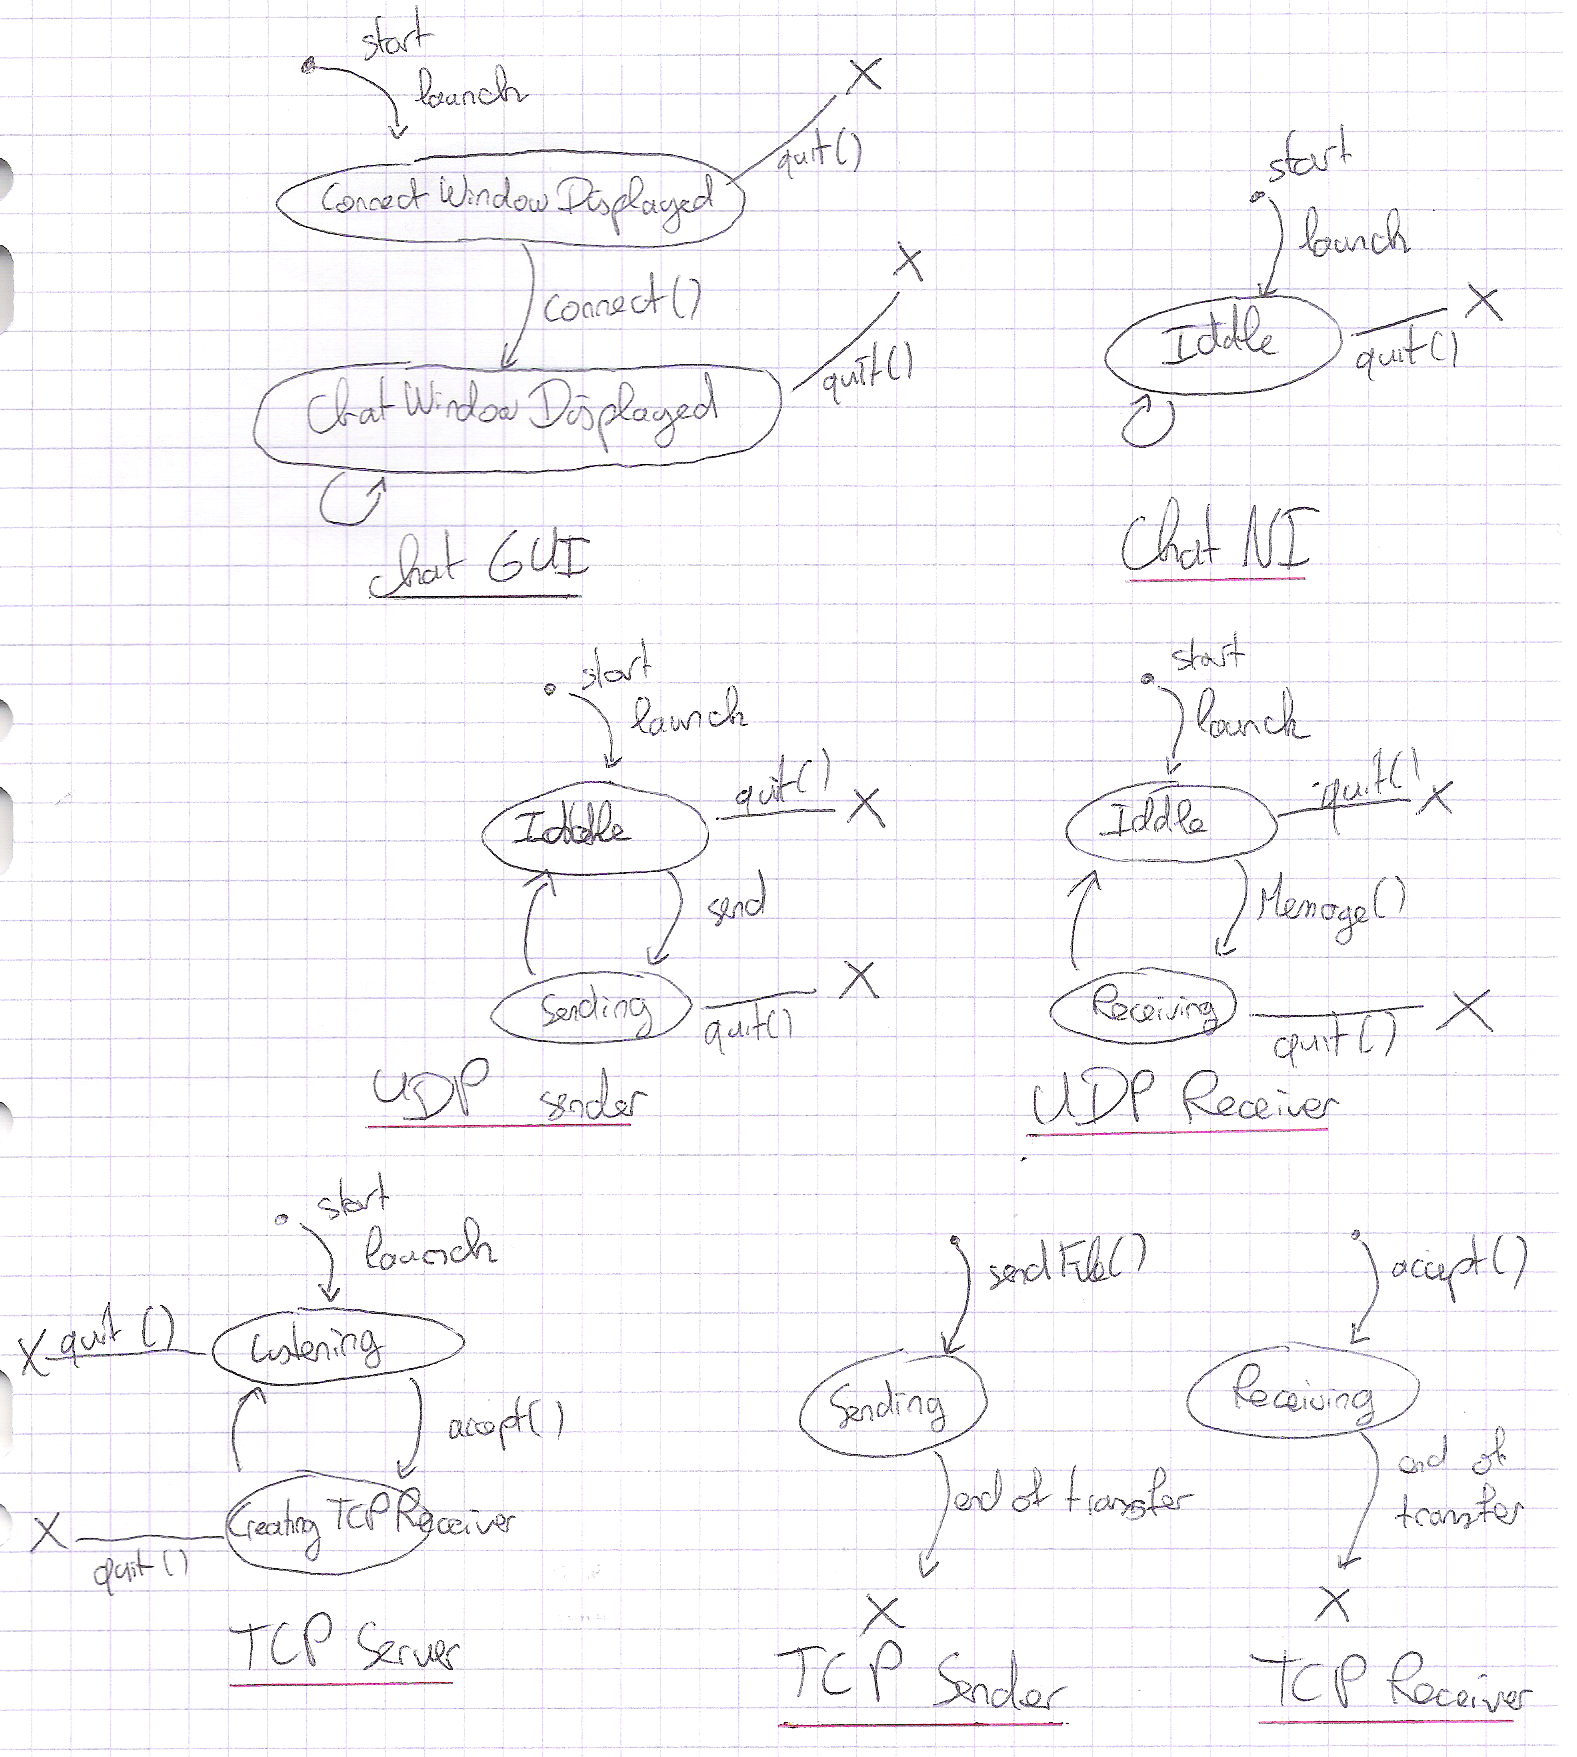 start
launch
quit()
Connect Window Displayed
connect()
quit()
Chat Window Displayed
Chat GUI
start
launch
Iddle
quit()
Chat NI
start
launch
quit()
Iddle
send
Sending
quit()
UDP sender
start
launch
quit()
Iddle
Message()
Receiving
quit()
UDP Receiver
start
launch
quit()
Listening
accept()
Creating TCP Receiver
quit()
TCP Server
sendFile()
Sending
end of transfer
TCP Sender
accept()
Receiving
end of
transfer
TCP Receiver